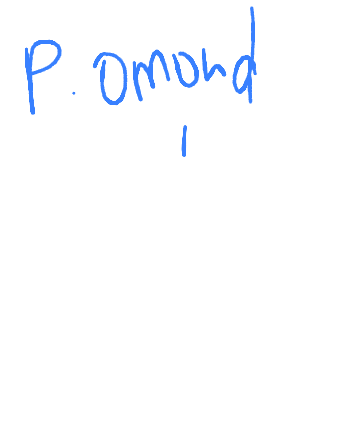 P. Omond